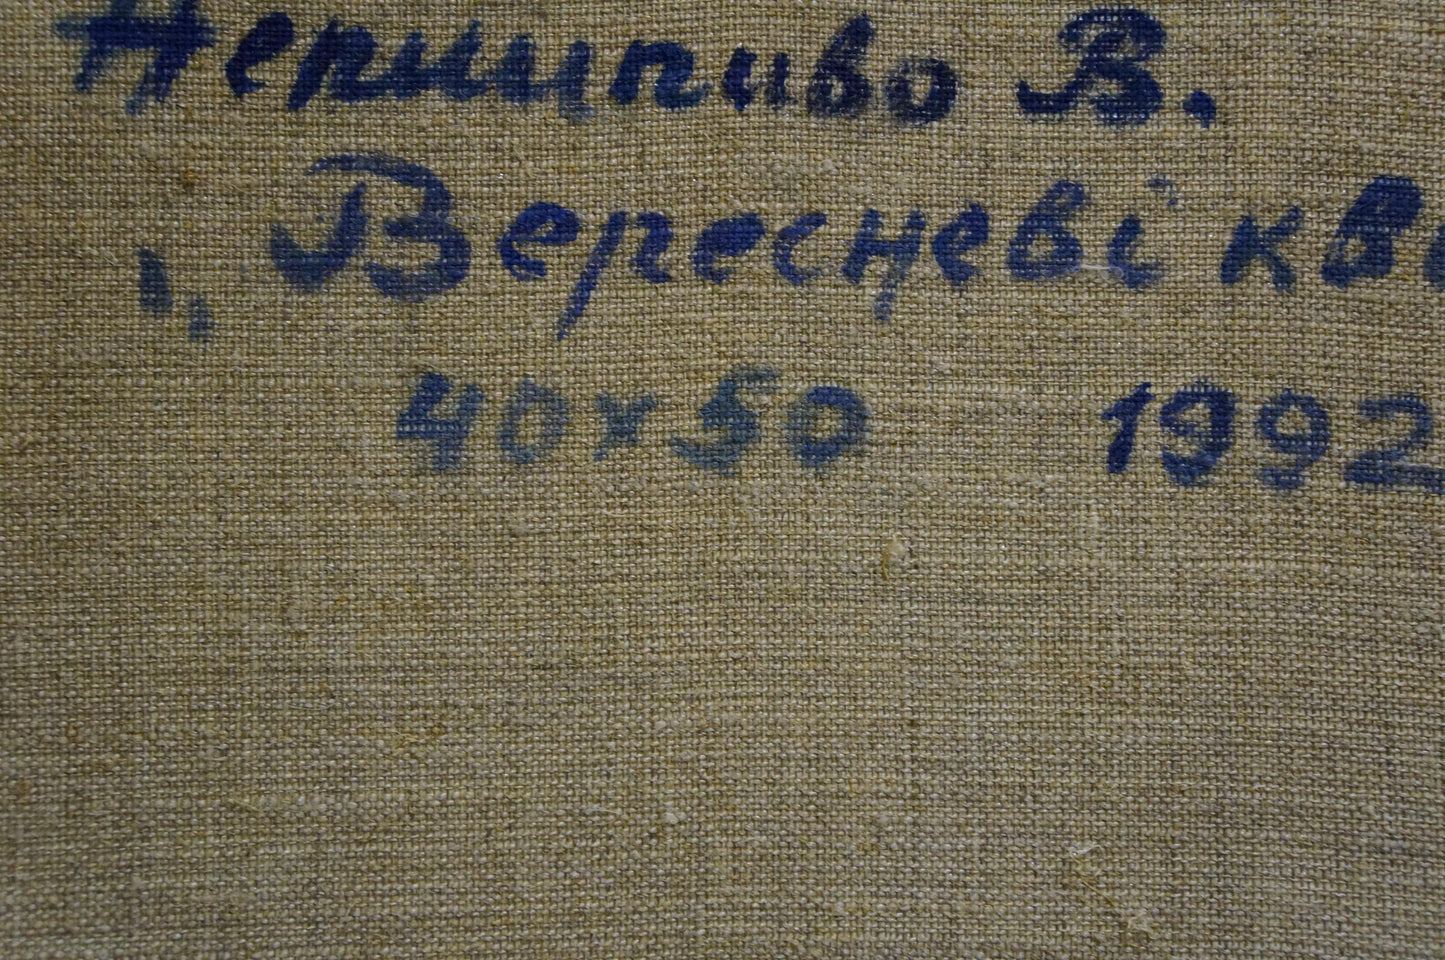 Нерипиво В.
„Вересневі кв
40х50 1992